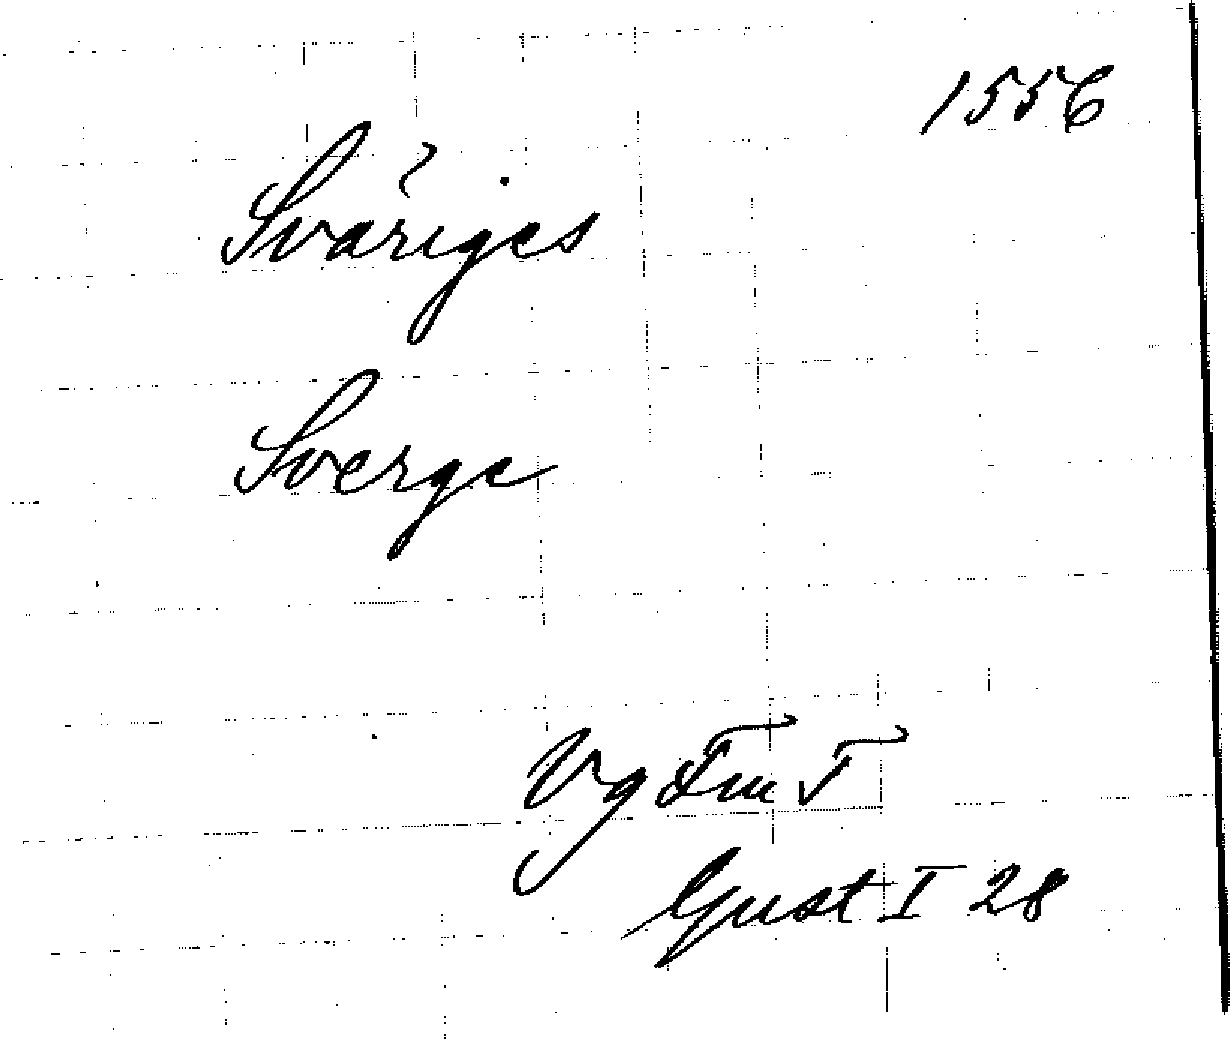 1556
Sväriges
Sverge
Vg Fm T
Gust I 28